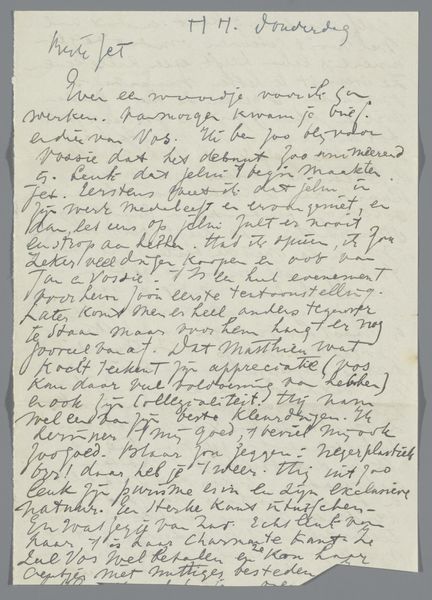 H H. Donderdag
Beste Jet
Even een woordje voor ik ga
werken. Vanmorgen kwam je brief.
en die van Vos. Ik ben zoo blij voor
Vossie dat het debuut zoo
Leuk dat jelui 't begin maakten
Jet. Eerstens weet ik dat jelui in
zijn werk meeleeft en ervan geniet, en
dan, let eens op jelui zult er nooit
een strop aan hebben. Had ik, ik zou
zeker veel dingen koopen en ook van
Jan en Vossie. 't Is een heel evenement
voor hem zoo'n eerste tentoonstelling.
Later komt men er heel anders tegenover
te staan maar voor hem hangt er nog
zooveel van af. Dat Matthieu wat
koopt teekent zijn appreciatie (Vos
kan daar veel voldoening van hebben)
en ook zijn collegialiteit. Hij nam
wel een van zijn beste kleurdingen. Ik
herinner 't mij goed, 't beviel mij ook
zoo goed. Maar zou zeggen: negerplastiek
daar heb je 't weer. Hij uit zoo
leuk zijn purisme es in en zijn exclusieve
natuur. En sterke kant
En wat zeg je van Echt leuk van
haar 't is haar charmante kant. Ze
zal Vos wel betalen en ze kan haar
centjes met nuttiges besteden